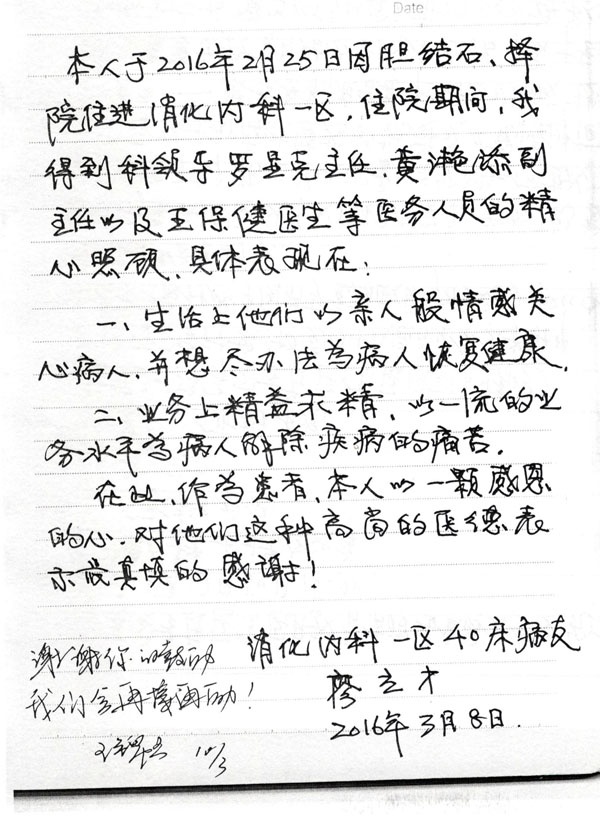 Date
本人于2016年2月25日因胆结石、择
院住进消化内科一区,住院期间,我
得到科领导罗显克主任、黄滟添副
主任以及王保健医生等医务人员的精
心照顾,具体表现在:
一、生活上他们以亲人般情感关
心病人,并想尽办法為病人恢复健康。
二、业务上精益求精,以一流的业
务水平為病人解除疾病的痛苦。
在此,作為患者,本人以一颗感恩
的心,对他们这种高尚的医德表
示最真填的感谢!
消化内科一区40床病友
廖立才
2016年3月8日.
谢谢你的鼓励
我们会再接再励!
10/3